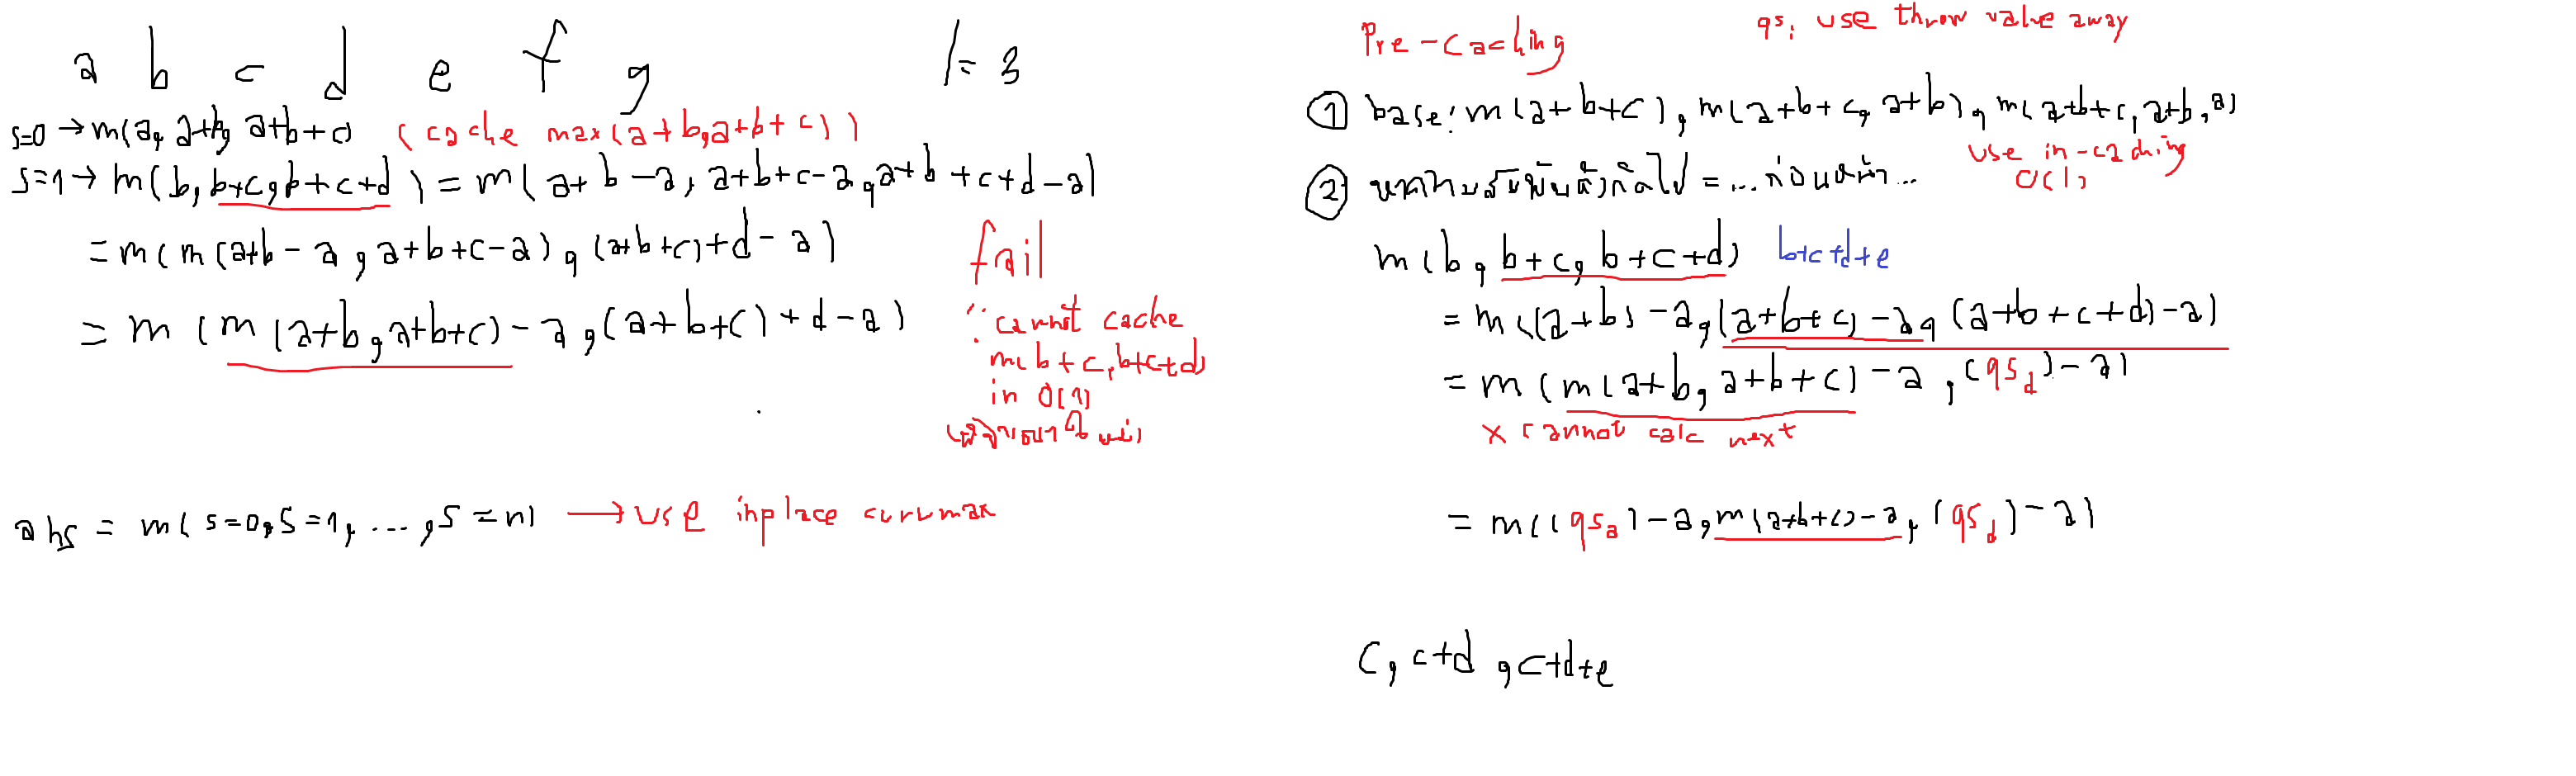 a b c d e f g l = 3
s=0 → m(a, a+b, a+b+c) (cache max(a+b, a+b+c))
s=1 → m(b, b+c, b+c+d) = m(a+b-a, a+b+c-a, a+b+c+d-a)
= m(m(a+b-a, a+b+c-a), (a+b+c)+d-a)
= m(m(a+b, a+b+c)-a, (a+b+c)+d-a)
fail
∵ cannot cache
m(b+c, b+c+d)
in O(1)
ans = m(s=0, s=1, ..., s=n) → use inplace currmax
Pre-caching
qs: use throw value away
① base: m(a+b+c), m(a+b+c, a+b), m(a+b+c, a+b, a)
use in-caching
O(1)
② หาความสัมพันธ์ตัวถัดไป = ...ก่อนหน้า...
m(b, b+c, b+c+d) b+c+d+e
= m((a+b)-a, (a+b+c)-a, (a+b+c+d)-a)
= m(m(a+b, a+b+c)-a, (qs_d)-a)
x cannot calc next
= m((qs_a)-a, m(a+b+c)-a, (qs_d)-a)
c, c+d, c+d+e